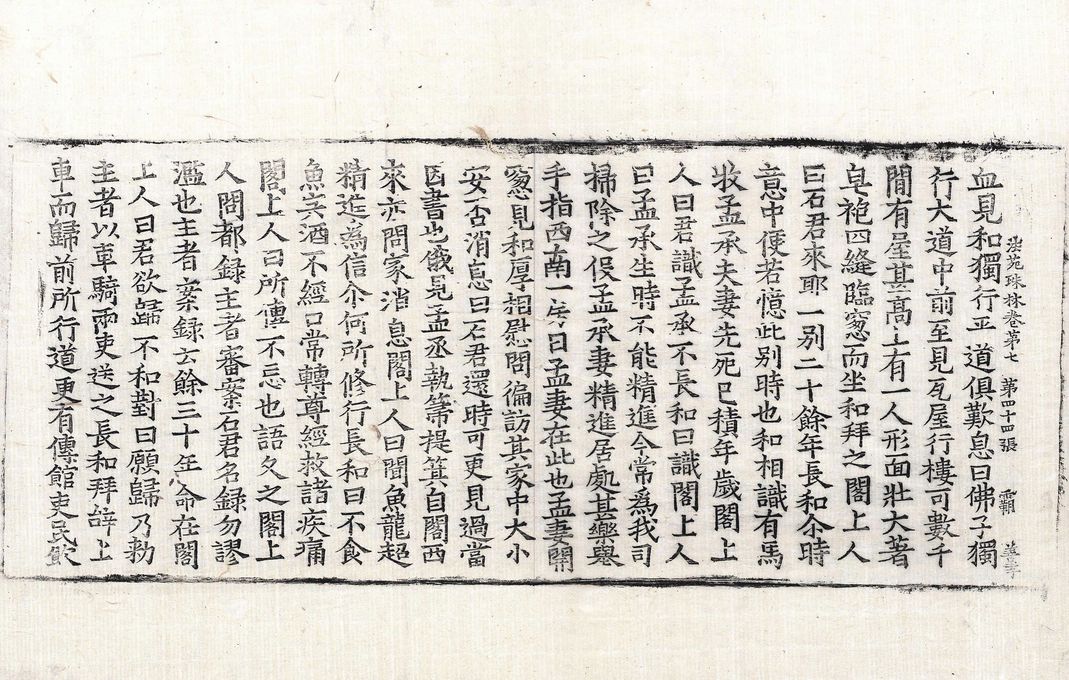 法苑珠林卷第七　第四十四張　霸
血見和獨行平道俱歎息曰佛子獨
行大道中前至見瓦屋行樓可數千
閒有屋甚高上有一人形面壯大著
皂袍四縫臨窻而坐和拜之閣上人
曰石君來耶一别二十餘年長和尒時
意中便若憶此别時也和相識有馬
牧孟承夫妻先死已積年歲閣上
人曰君識孟承不長和曰識閣上人
曰孟承生時不能精進今常爲我司
掃除之役孟承妻精進居處甚樂舉
手指西南一房曰孟妻在此也孟妻開
窻見和厚相慰問徧訪其家中大小
安否消息曰石君還時可更見過當
因書也俄見孟丞執箒提箕自閣西
來亦問家消息閣上人曰聞魚龍超
精進爲信尒何所修行長和曰不食
魚宍酒不經口常轉尊經救諸疾痛
閣上人曰所傳不忘也語久之閣上
人問都録主者審案石君名録勿謬
濫也主者案録云餘三十年命在閣
上人曰君欲歸不和對曰願歸乃勑
主者以車騎兩吏送之長和拜辞上
車而歸前所行道更有傳館吏民飲